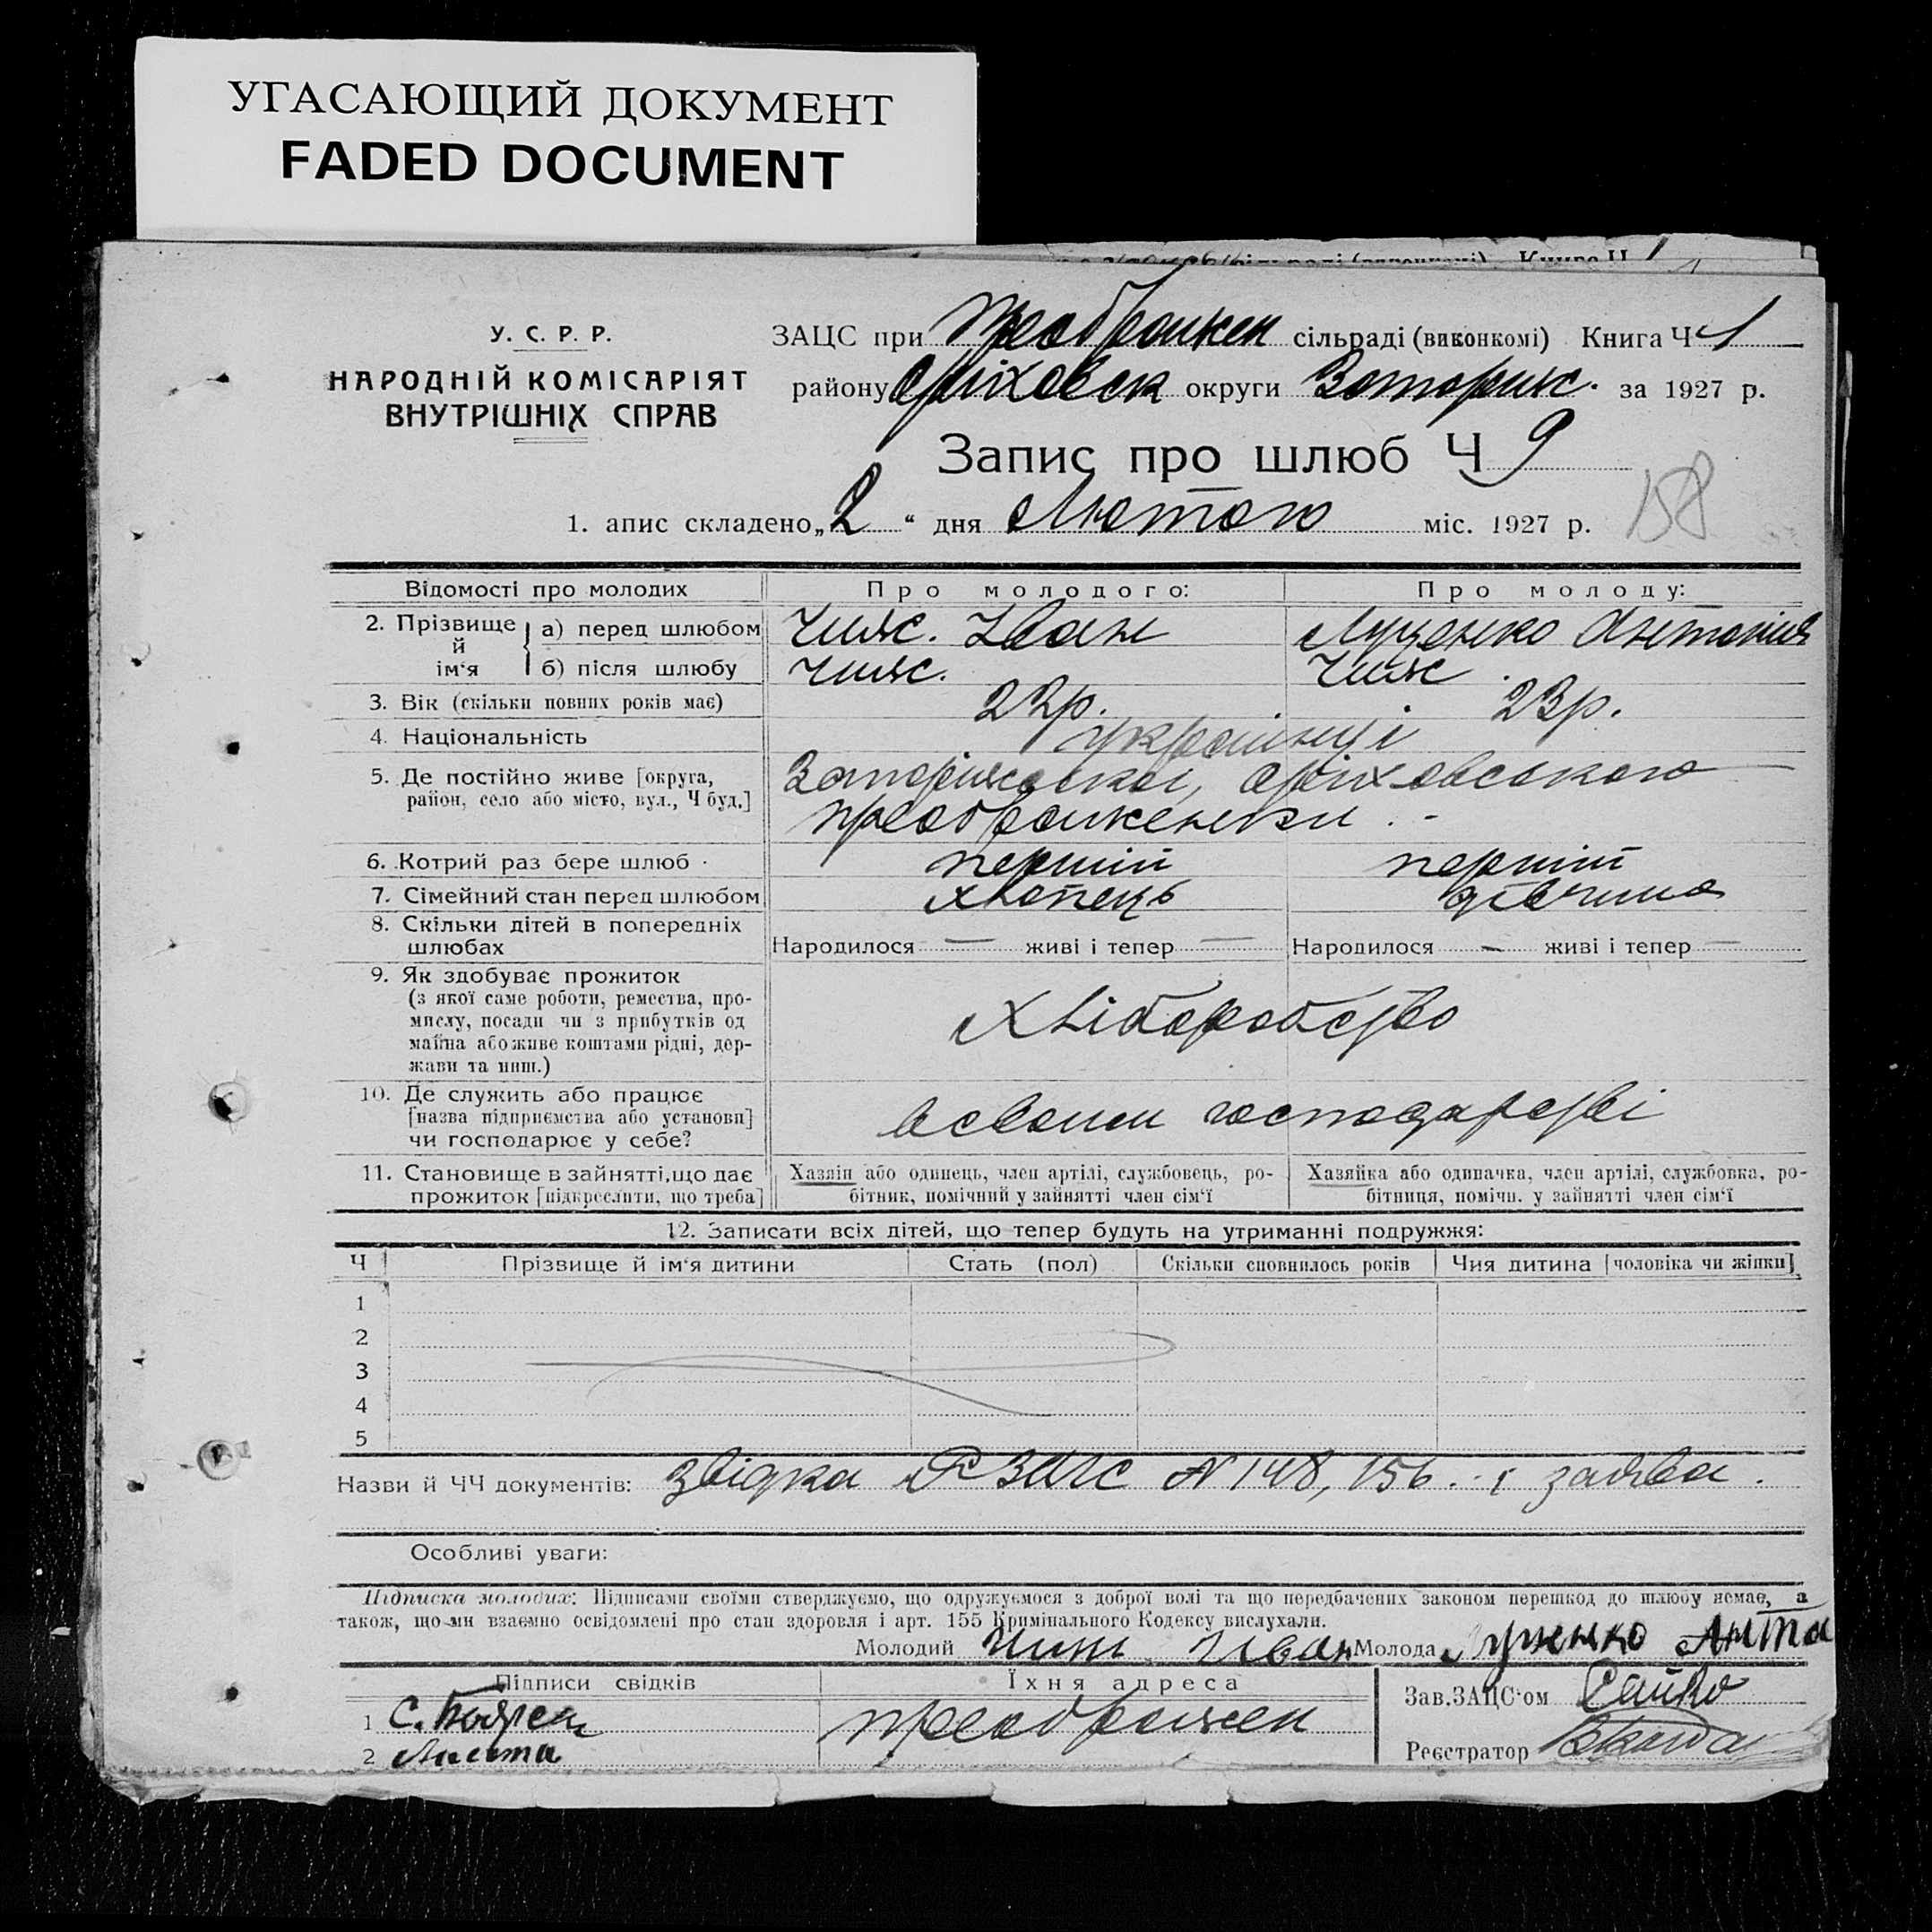 УГАСАЮЩИЙ ДОКУМЕНТ
FADED DOCUMENT
У. С. Р. Р.
НАРОДНІЙ КОМІСАРІЯТ
ВНУТРІШНІХ СПРАВ
ЗАЦС при Преображен сільраді (виконкомі) Книга Ч 1
району Оріховск округи Запоріж. за 1927 р.
Запис про шлюб Ч 9
158
1. апис складено „2“ дня Лютого міс. 1927 р.
Відомості про молодих Про молодого: Про молоду:
2. Прізвище й ім‘я а) перед шлюбом Чиж. Іван Луценко Антонія
б) після шлюбу Чиж. Чиж.
3. Вік (скільки повних років має) 22р. 23р.
4. Національність українці
5. Де постійно живе [округа, Запоріжської, Оріховського
район, село або місто, вул., Ч буд.] Преображенки.
6. Котрий раз бере шлюб перший перший
7. Сімейний стан перед шлюбом хлопець дівчина
8. Скільки дітей в попередніх
шлюбах Народилося — живі і тепер — Народилося — живі і тепер —
9. Як здобуває прожиток
(з якої саме роботи, ремества, про-
мислу, посади чи з прибутків од Хліборобство
майна або живе коштами рідні, дер-
жави та инш.)
10. Де служить або працює
[назва підприємства або установи] в своїм господарстві
чи господарює у себе?
11. Становище в зайнятті, що дає Хазяїн або одинець, член артілі, службовець, ро- Хазяйка або одиначка, член артілі, службовка, ро-
прожиток [підкреслити, що треба] бітник, помічний у зайнятті член сім‘ї бітниця, помічн. у зайнятті член сім‘ї
12. Записати всіх дітей, що тепер будуть на утриманні подружжя:
Ч Прізвище й ім‘я дитини Стать (пол) Скільки сповнилось років Чия дитина [чоловіка чи жінки]
1
2
3
4
5
Назви й ЧЧ документів: Звідка РЗАГС N 148, 156. і заява.
Особливі уваги:
Підписка молодих: Підписами своїми стверджуємо, що одружуємося з доброї волі та що передбачених законом перешкод до шлюбу немає, а
також, що ми взаємно освідомлені про стан здоровля і арт. 155 Кримінального Кодексу вислухали.
Молодий Чиж Іван Молода Луценко Анта
Підписи свідків Їхня адреса Зав. ЗАЦС‘ом
1 С. Преображен
2 Реєстратор